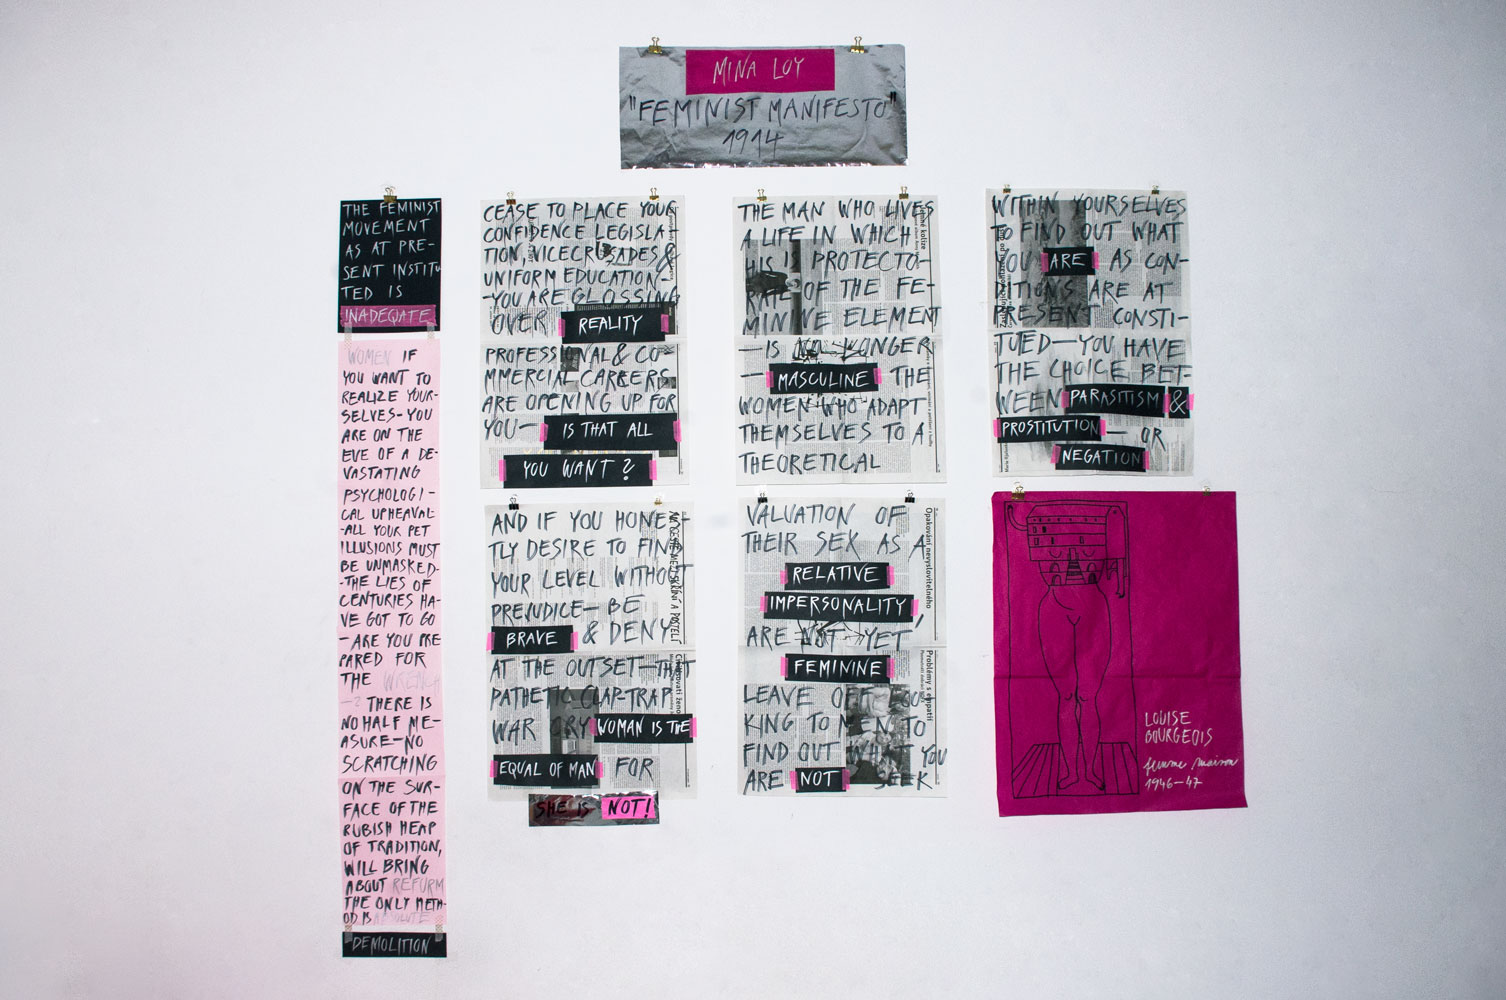 MINA LOY
"FEMINIST MANIFESTO"
1914
THE FEMINIST
MOVEMENT
AS AT PRE-
SENT INSTITU
TED IS
INADEQATE
WOMEN IF
YOU WANT TO
REALIZE YOUR-
SELVES-YOU
ARE ON THE
EVE OF A DE-
VASTATING
PSYCHOLOGI-
CAL UPHEAVAL
-ALL YOUR PET
ILLUSIONS MUST
BE UNMASKED-
-THE LIES OF
CENTURIES HA-
VE GOT TO GO
-ARE YOU PRE
PARED FOR
THE WRENCH
-? THERE IS
NO HALF ME-
ASURE-NO
SCRATCHING
ON THE SUR-
FACE OF THE
RUBISH HEAP
OF TRADITION,
WILL BRING
ABOUT REFORM
THE ONLY METH-
OD IS ABSOLUTE
DEMOLITION
CEASE TO PLACE YOUR
CONFIDENCE LEGISLA-
TION, VICECRUSADES &
UNIFORM EDUCATION-
-YOU ARE GLOSSING
OVER REALITY
PROFESSIONAL & CO-
MMERCIAL CAREERS
ARE OPENING UP FOR
YOU- IS THAT ALL
YOU WANT?
AND IF YOU HONES-
TLY DESIRE TO FIND
YOUR LEVEL WITHOUT
PREJUDICE- BE
BRAVE & DENY
AT THE OUTSET-THAT
PATHETIC CLAP-TRAP
WAR CRY WOMAN IS THE
EQUAL OF MAN FOR
SHE IS NOT!
THE MAN WHO LIVES
A LIFE IN WHICH
HIS PROTECTO-
RATE OF THE FE-
MININE ELEMENT
-IS NO LONGER
- MASCULINE THE
WOMEN WHO ADAPT
THEMSELVES TO A
THEORETICAL
VALUATION OF
THEIR SEX AS A
RELATIVE
IMPERSONALITY
ARE NOT YET
FEMININE
LEAVE OFF LOO-
KING TO MEN TO
FIND OUT WHAT YOU
ARE NOT SEEK
Opakování nevyslovitelného
Problémy s empatií
WITHIN YOURSELVES
TO FIND OUT WHAT
YOU ARE AS CON-
DITIONS ARE AT
PRESENT CONSTI-
TUTED-YOU HAVE
THE CHOICE BET-
WEEN PARASITISM &
PROSTITUTION - OR
NEGATION
LOUISE
BOURGEOIS
femme maison
1946-47